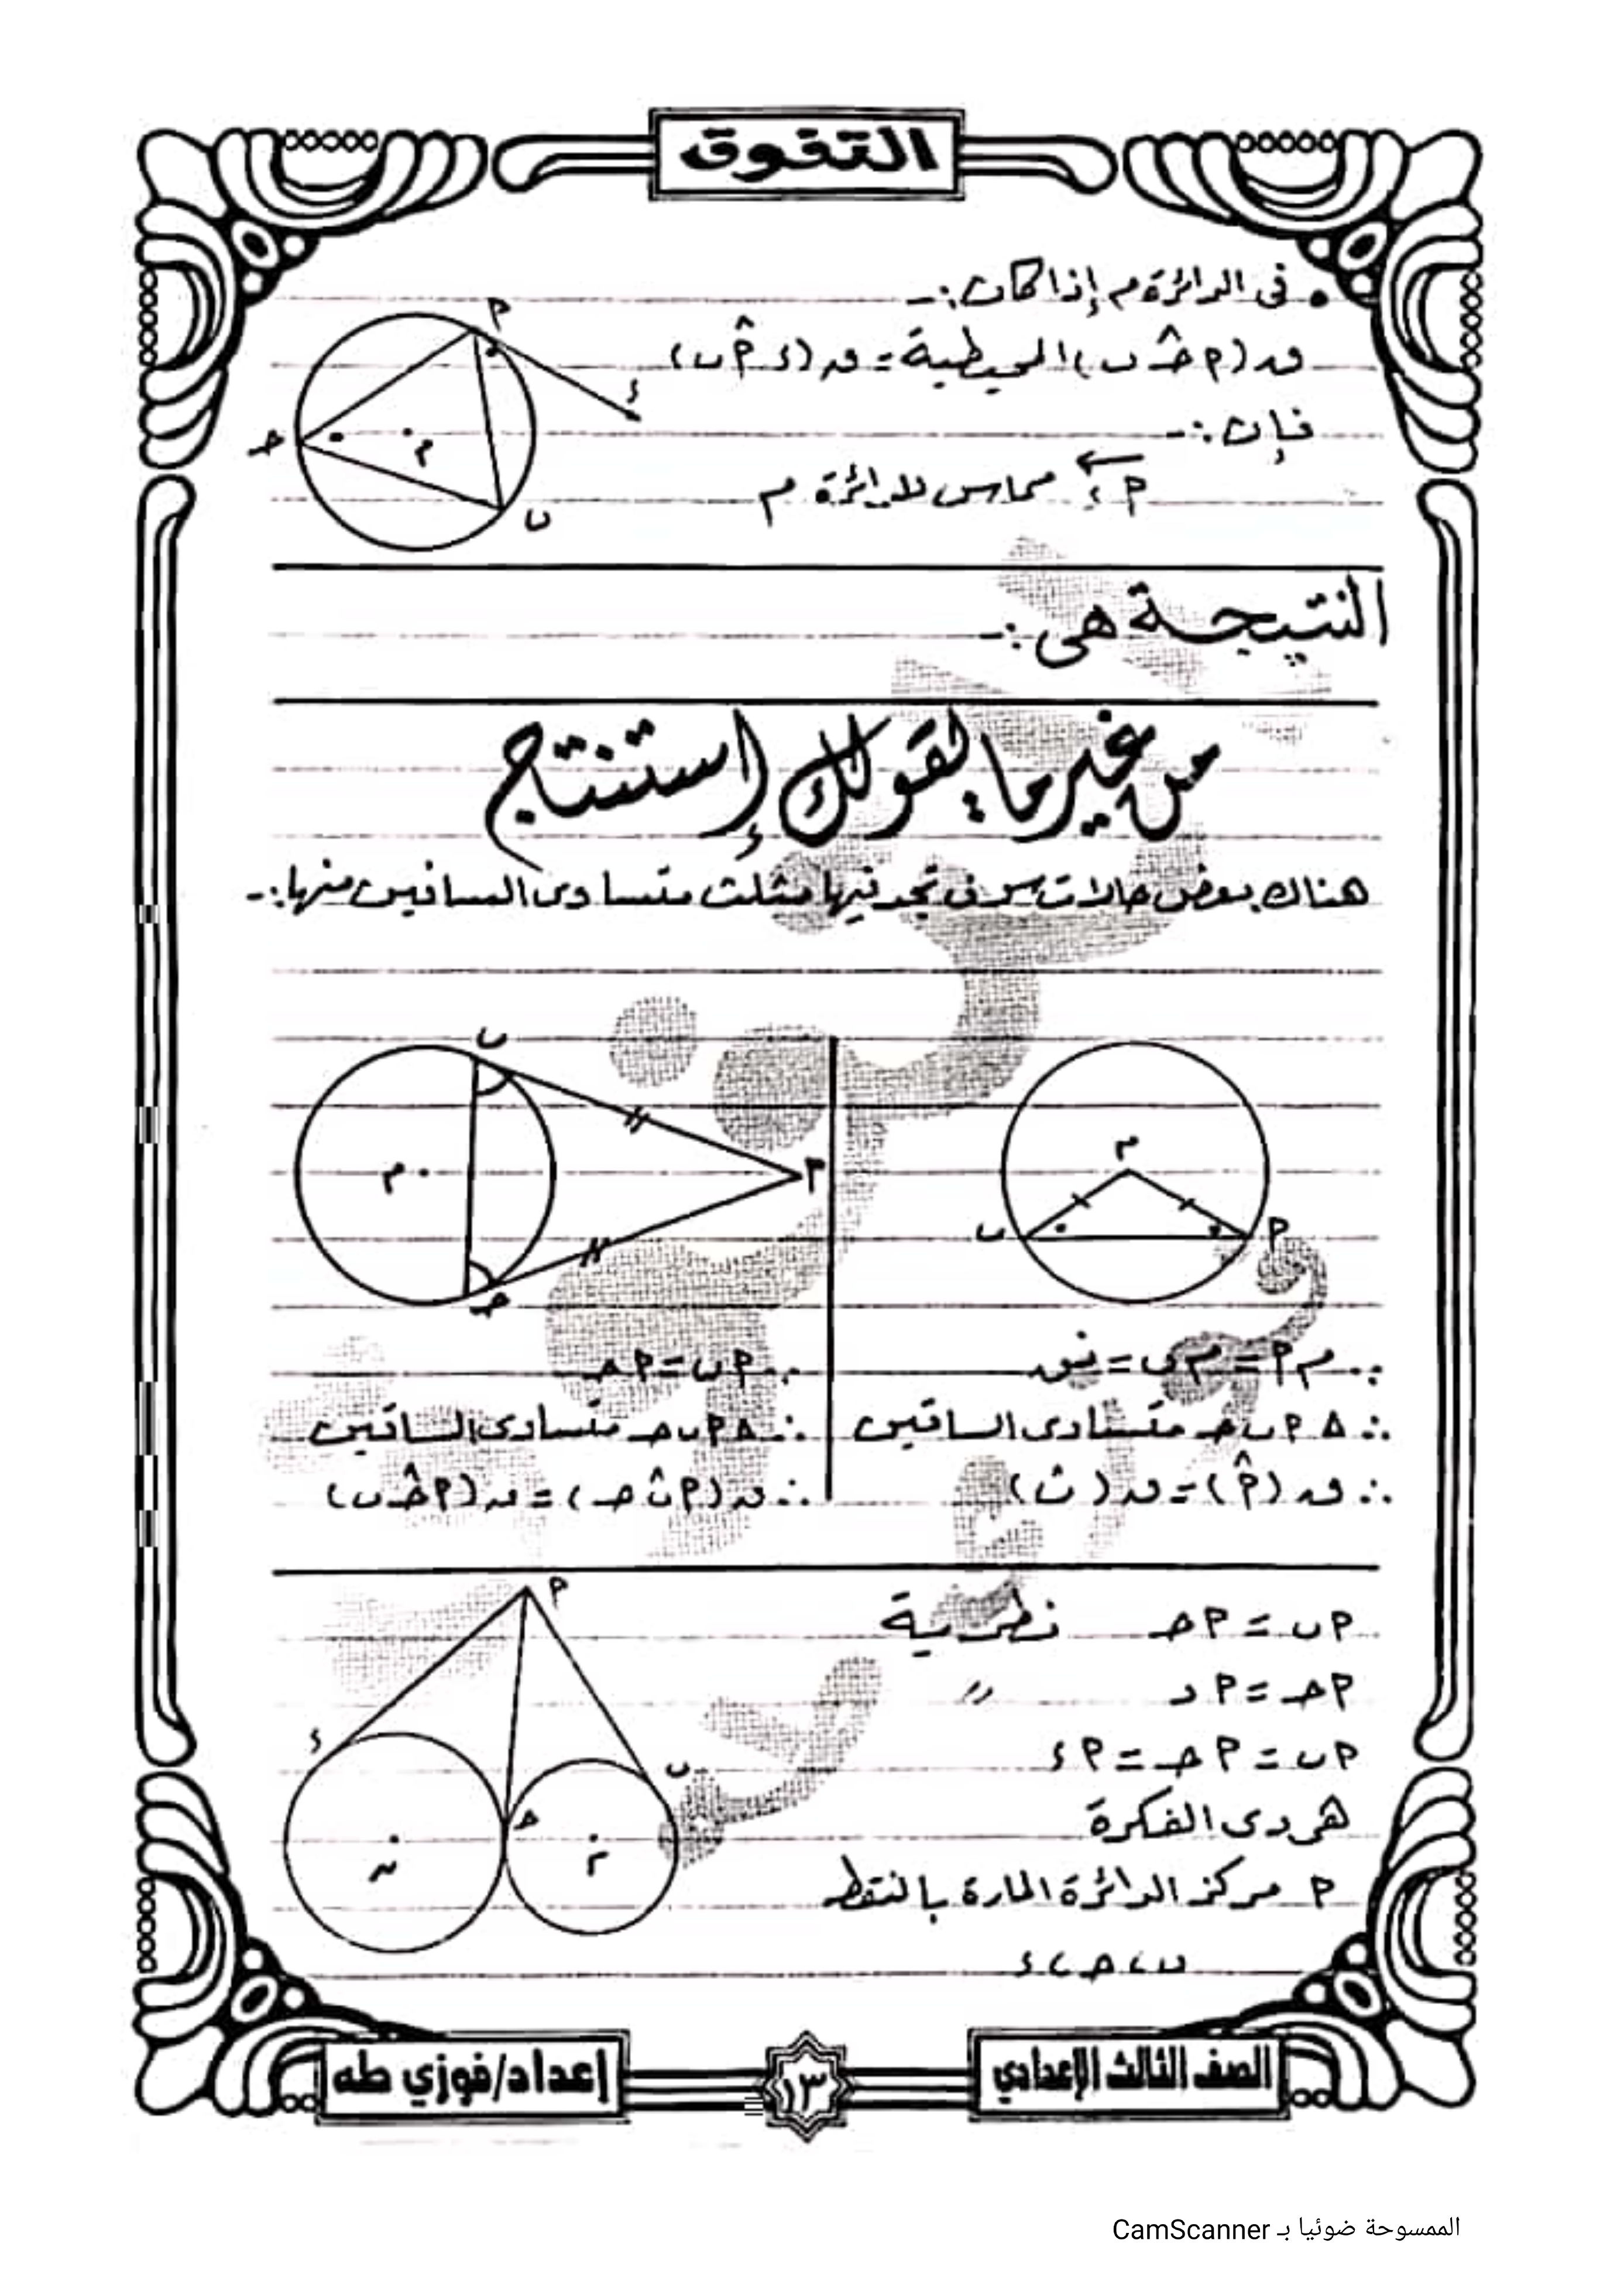 التفوق
• فى الدائرة م إذا كان :-
ق(أ ح̂ ب) المحيطية = ق(ء أ̂ ب)
فإن :-
أء مماس للدائرة م
أ
ء
ح
م
ب
النتيجة هى :-
من غير ما يقولك إستنتج
هناك بعض حالات سوف تجد فيها مثلث متساوى الساقين منها :-
م
ب
أ
∵ م أ = م ب = نق
∴ Δ أ ب ح متساوى الساقين
∴ ق(أ̂) = ق(ب̂)
ب
م
أ
ح
∵ أ ب = أ ح
∴ Δ أ ب ح متساوى الساقين
∴ ق(أ ب̂ ح) = ق(أ ح̂ ب)
أ ب = أ ح نظرية
أ ح = أ د 〃
أ ب = أ ح = أ ء
هى دى الفكرة
أ مركز الدائرة المارة بالنقط
ب ، ح ، ء
أ
ء
ب
ح
ن
م
الصف الثالث الإعدادي
١٣
إعداد/فوزي طه
الممسوحة ضوئيا بـ CamScanner